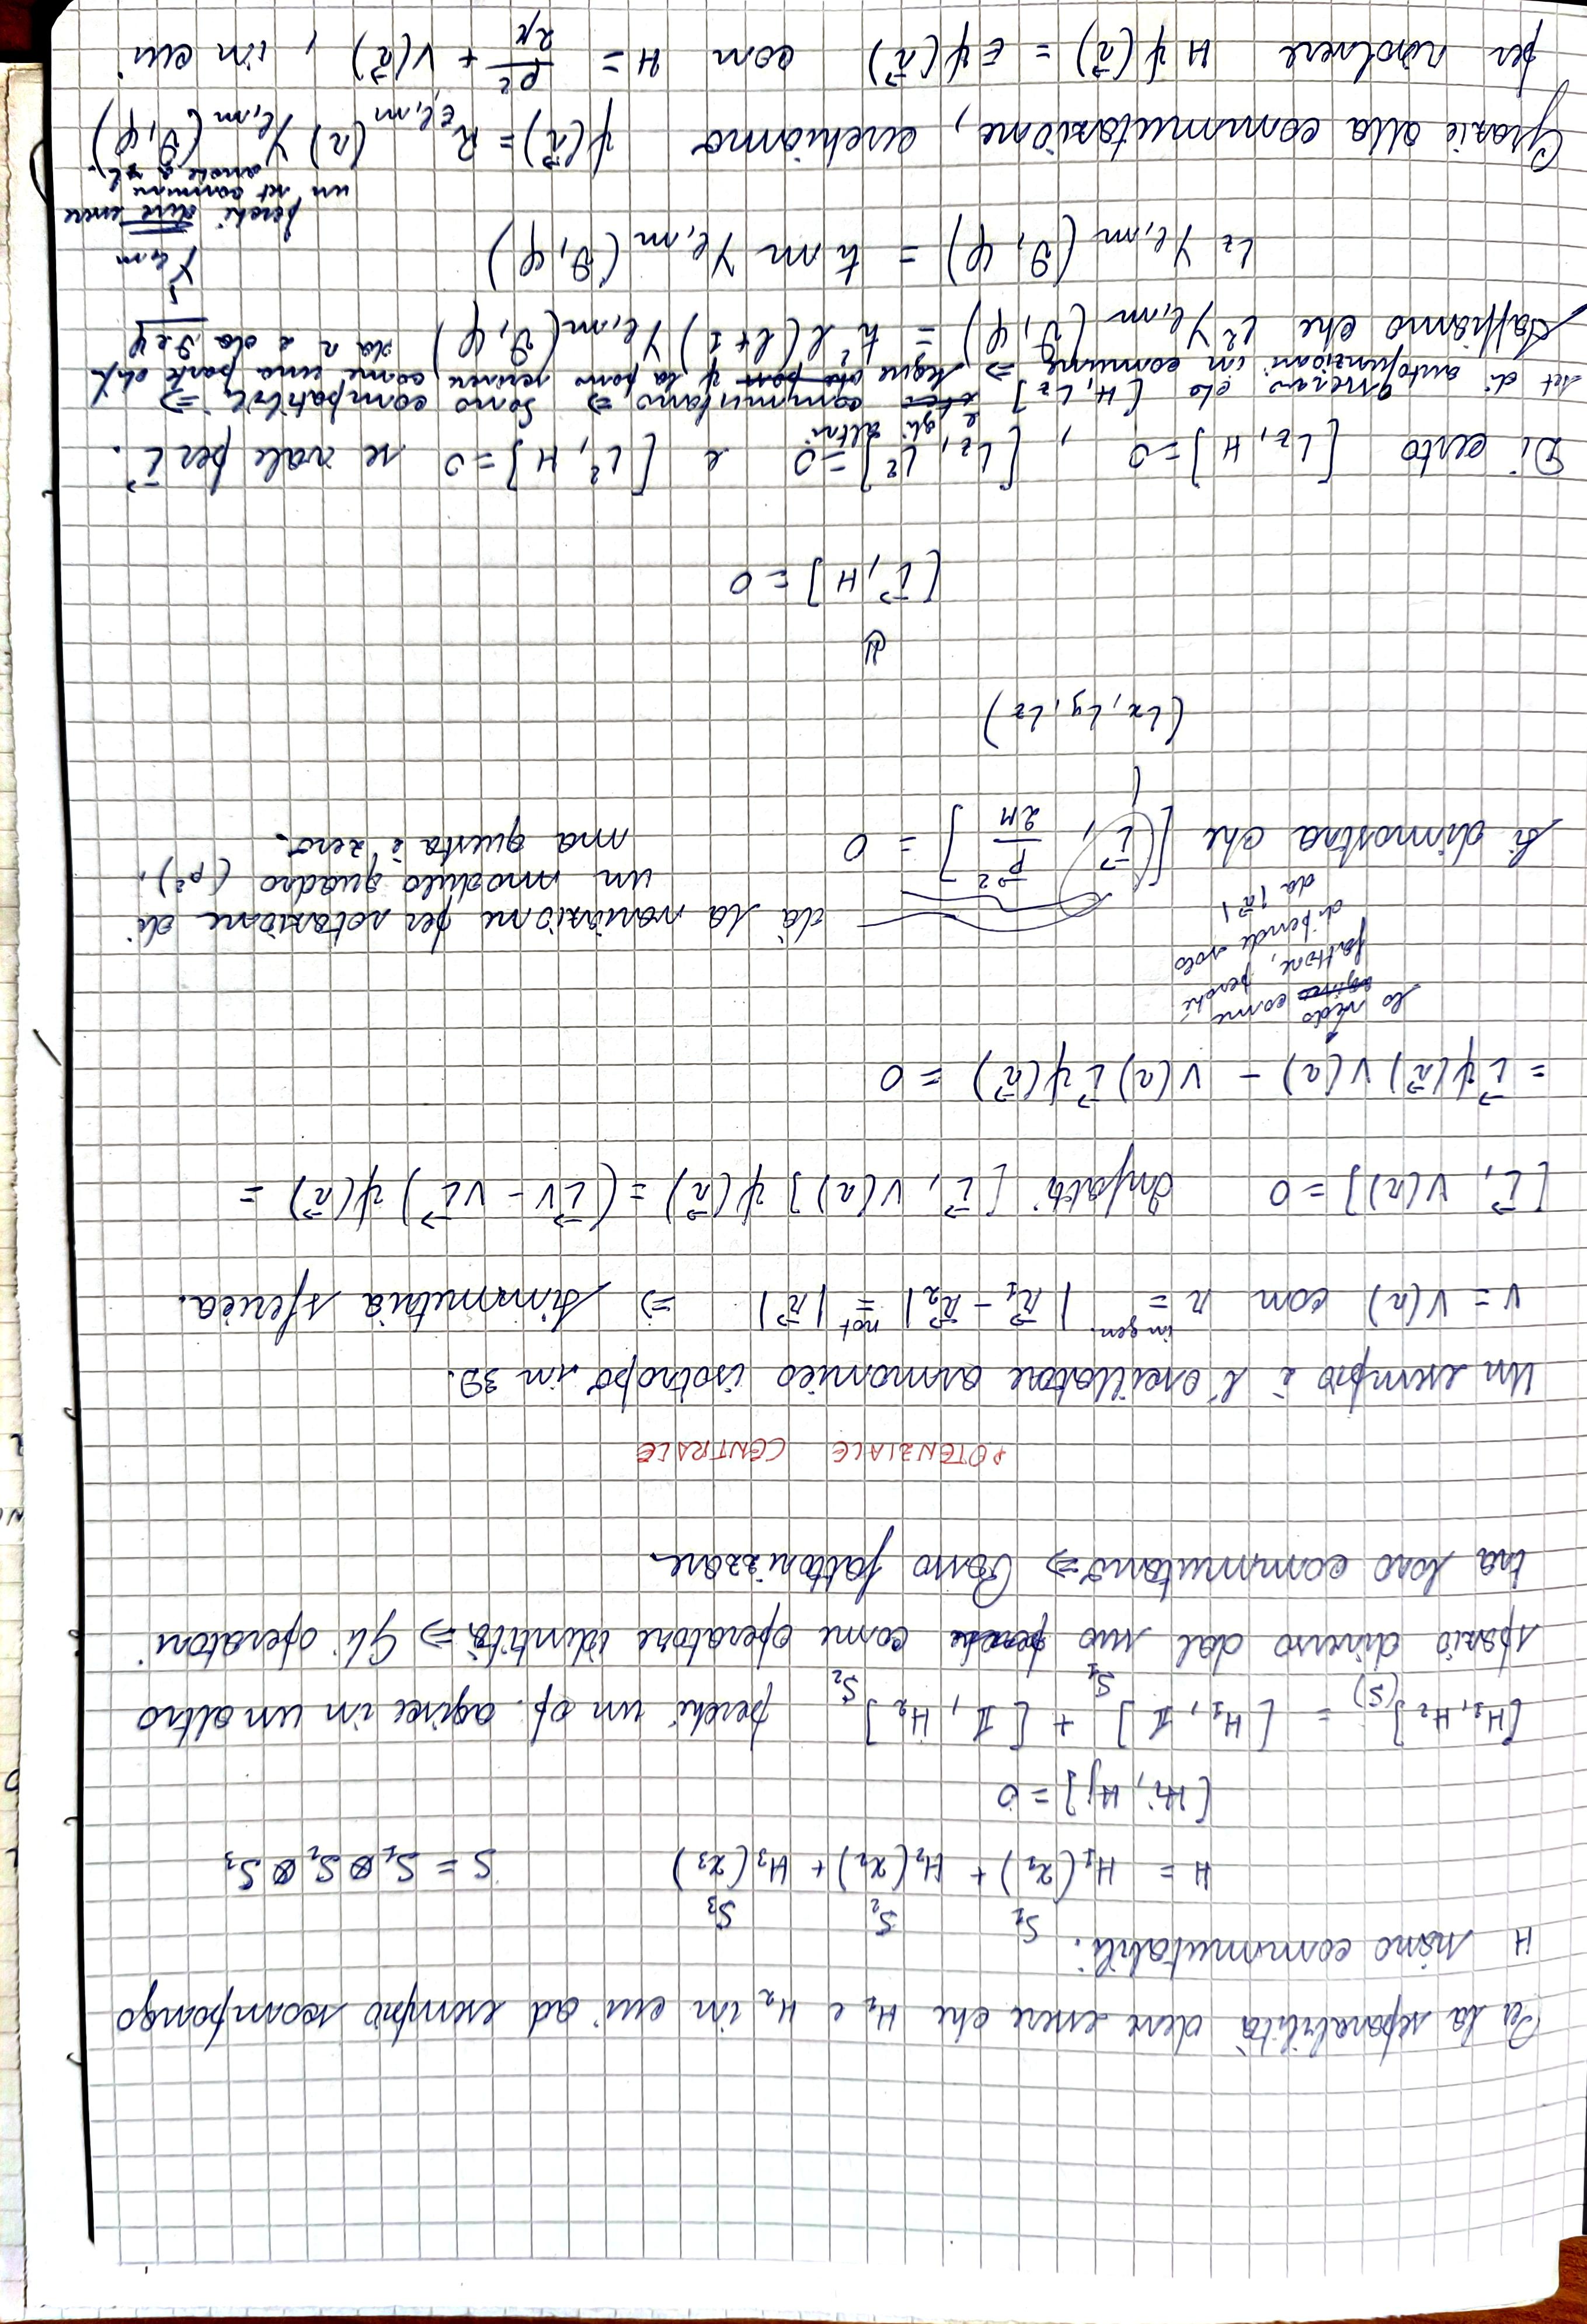 Per la separabilità deve essere che H₁ e H₂ in cui ad esempio scompongo
H siano commutabili.
S₁ S₂ S₃
H = H₁(x₁) + H₂(x₂) + H₃(x₃) S = S₁ ⊗ S₂ ⊗ S₃
[Hi, Hj] = 0
[H₁, H₂]_(S) = [H₁, 𝟙]_S₁ + [𝟙, H₂]_S₂ perché un op. agisce in un altro
spazio diverso dal suo come operatore identità ⇒ Gli operatori
tra loro commutano ⇒ Posso fattorizzare.
POTENZIALE CENTRALE
Un esempio è l'oscillatore armonico isotropo in 3D.
V = V(r) con r =^(in gen.) |r⃗₁ - r⃗₂| =^(not) |r⃗| ⇒ Simmetria sferica.
[L⃗, V(r)] = 0 Infatti [L⃗, V(r)] ψ(r⃗) = (L⃗V - VL⃗) ψ(r⃗) =
= L⃗ψ(r⃗) V(r) - V(r) L⃗ψ(r⃗) = 0
lo vedo
come
fattore, perché
dipende solo
da |r⃗|
dà la variazione per rotazione di
un modulo quadro (p²),
ma questa è zero.
Si dimostra che [L⃗, p⃗²/2M] = 0
(Lx, Ly, Lz)
⇓
[L⃗, H] = 0
Di certo [Lz, H] = 0 , [Lz, L²] = 0 e [L², H] = 0 se vale per L⃗.
ovvero che [H, Lz] e gli altri commutano ⇒ Sono compatibili ⇒
set di autofunzioni in comune ⇒ segue ψ la posso scrivere come una parte dip.
da r e da ϑ e φ
Sappiamo che L² Y_l,m (ϑ, φ) = ħ² l(l+1) Y_l,m (ϑ, φ)
↓
Y_l,m
Lz Y_l,m (ϑ, φ) = ħ m Y_l,m (ϑ, φ)
perché deve essere
un set comune
anche a
Grazie alla commutazione, cerchiamo ψ(r⃗) = R_E,l,m (r) Y_l,m (ϑ, φ)
per risolvere Hψ(r⃗) = Eψ(r⃗) con H = p²/2μ + V(r⃗) , in cui